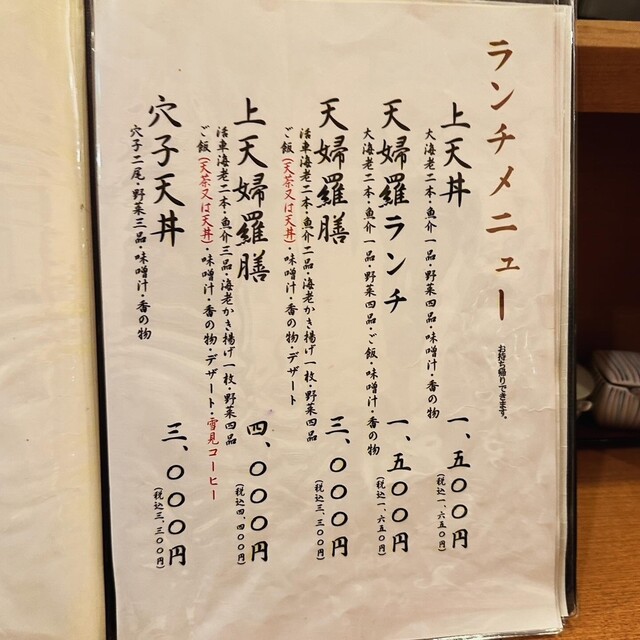 ランチメニュー
お持ち帰りできます。
上天丼
大海老二本・魚介一品・野菜四品・味噌汁・香の物
一、五〇〇円
(税込一、六五〇円)
天婦羅ランチ
大海老二本・魚介一品・野菜四品・ご飯・味噌汁・香の物
一、五〇〇円
(税込一、六五〇円)
天婦羅膳
活車海老二本・魚介二品・海老かき揚げ一枚・野菜四品
ご飯(天茶又は天丼)・味噌汁・香の物・デザート
三、〇〇〇円
(税込三、三〇〇円)
上天婦羅膳
活車海老二本・魚介三品・海老かき揚げ一枚・野菜四品
ご飯(天茶又は天丼)・味噌汁・香の物・デザート・雪見コーヒー
四、〇〇〇円
(税込四、四〇〇円)
穴子天丼
穴子二尾・野菜三品・味噌汁・香の物
三、〇〇〇円
(税込三、三〇〇円)